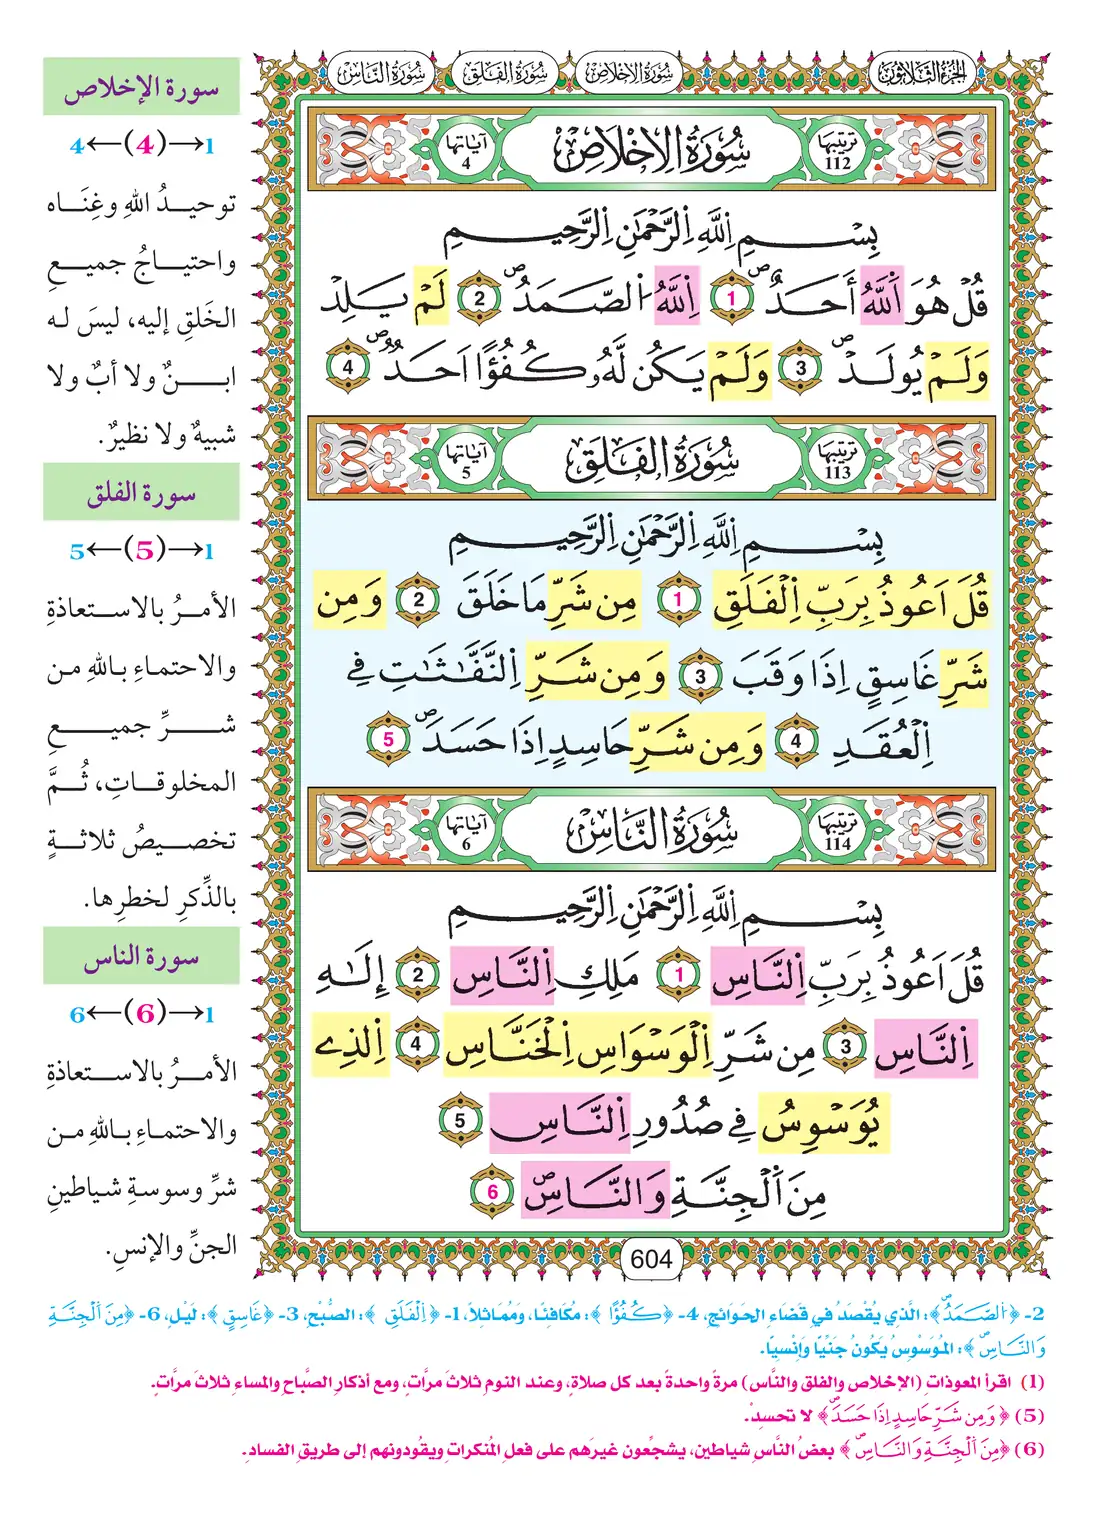 الجزء الثلاثون
سُورَةُ الإخْلَاصِ
سُورَةُ الفَلَقِ
سُورَةُ النَّاسِ
ترتيبها 112
سُورَةُ الإِخْلَاصِ
آياتها 4
بِسْمِ اِللَّهِ اِلرَّحْمَٰنِ اِلرَّحِيمِ
قُلْ هُوَ اَللَّهُ أَحَدٌ ۖ 1 اِللَّهُ اُلصَّمَدُ ۖ 2 لَمْ يَلِدْ
وَلَمْ يُولَدْ ۖ 3 وَلَمْ يَكُن لَّهُۥ كُفُؤًا اَحَدٌ ۖ 4
ترتيبها 113
سُورَةُ الفَلَقِ
آياتها 5
بِسْمِ اِللَّهِ اِلرَّحْمَٰنِ اِلرَّحِيمِ
قُلَ اَعُوذُ بِرَبِّ اِلْفَلَقِ 1 مِن شَرِّ مَا خَلَقَ 2 وَمِن
شَرِّ غَاسِقٍ اِذَا وَقَبَ 3 وَمِن شَرِّ اِلنَّفَّٰثَٰتِ فِے
اِلْعُقَدِ 4 وَمِن شَرِّ حَاسِدٍ اِذَا حَسَدَ ۖ 5
ترتيبها 114
سُورَةُ النَّاسِ
آياتها 6
بِسْمِ اِللَّهِ اِلرَّحْمَٰنِ اِلرَّحِيمِ
قُلَ اَعُوذُ بِرَبِّ اِلنَّاسِ 1 مَلِكِ اِلنَّاسِ 2 إِلَٰهِ
اِلنَّاسِ 3 مِن شَرِّ اِلْوَسْوَاسِ اِلْخَنَّاسِ 4 اِلذِے
يُوَسْوِسُ فِے صُدُورِ اِلنَّاسِ 5
مِنَ اَلْجِنَّةِ وَالنَّاسِ ۖ 6
604
سورة الإخلاص
1→(4)←4
توحيدُ اللهِ وغِنَاه
واحتياجُ جميعِ
الخَلقِ إليه، ليسَ له
ابنٌ ولا أبٌ ولا
شبيهٌ ولا نظيرٌ.
سورة الفلق
1→(5)←5
الأمرُ بالاستعاذةِ
والاحتماءِ باللهِ من
شرِّ جميعِ
المخلوقاتِ، ثُمَّ
تخصيصُ ثلاثةٍ
بالذِّكرِ لخطرِها.
سورة الناس
1→(6)←6
الأمرُ بالاستعاذةِ
والاحتماءِ باللهِ من
شرِّ وسوسةِ شياطينِ
الجنِّ والإنسِ.
2- ﴿اُلصَّمَدُ ۖ﴾: الَّذِي يُقْصَدُ فِي قَضَاءِ الحَوَائِجِ، 4- ﴿كُفُؤًا﴾: مُكَافِئًا، وَمُمَاثِلاً، 1- ﴿اِلْفَلَقِ﴾: الصُّبْحِ، 3- ﴿غَاسِقٍ﴾: لَيْلٍ، 6- ﴿مِنَ اَلْجِنَّةِ
وَالنَّاسِ ۖ﴾: المُوَسْوِسُ يَكُونُ جِنِّيًّا وَإِنْسِيًّا.
(1) اقرأ المعوذاتِ (الإخلاص والفلق والنَّاس) مرةً واحدةً بعد كل صلاة، وعند النوم ثلاثَ مرَّات، ومع أذكار الصَّباح والمساءِ ثلاثَ مرَّات.
(5) ﴿وَمِن شَرِّ حَاسِدٍ اِذَا حَسَدَ ۖ﴾ لا تحسدْ.
(6) ﴿مِنَ اَلْجِنَّةِ وَالنَّاسِ ۖ﴾ بعضُ النَّاسِ شياطين، يشجِّعون غيرَهم على فعلِ المُنكراتِ ويقُودونهم إلى طريقِ الفساد.